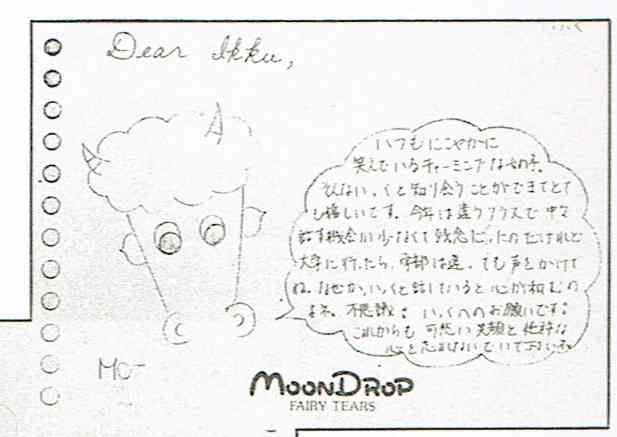 Dear Ikku,
いつもにこやかに
笑んでいるチャーミングな女の子。
そんないっくと知り合うことができてとて
も嬉しいです。今年は違うクラスで中々
話す機会が少なくて残念だったのだけれど
大学に行ったら、学部は違っても声をかけて
ね。なぜか、いっくと話していると心が和むの
よネ。不思議! いっくへのお願いです:
これからも可愛い笑顔と
心を忘れないでいて下さいネ
MO-
MOONDROP
FAIRY TEARS